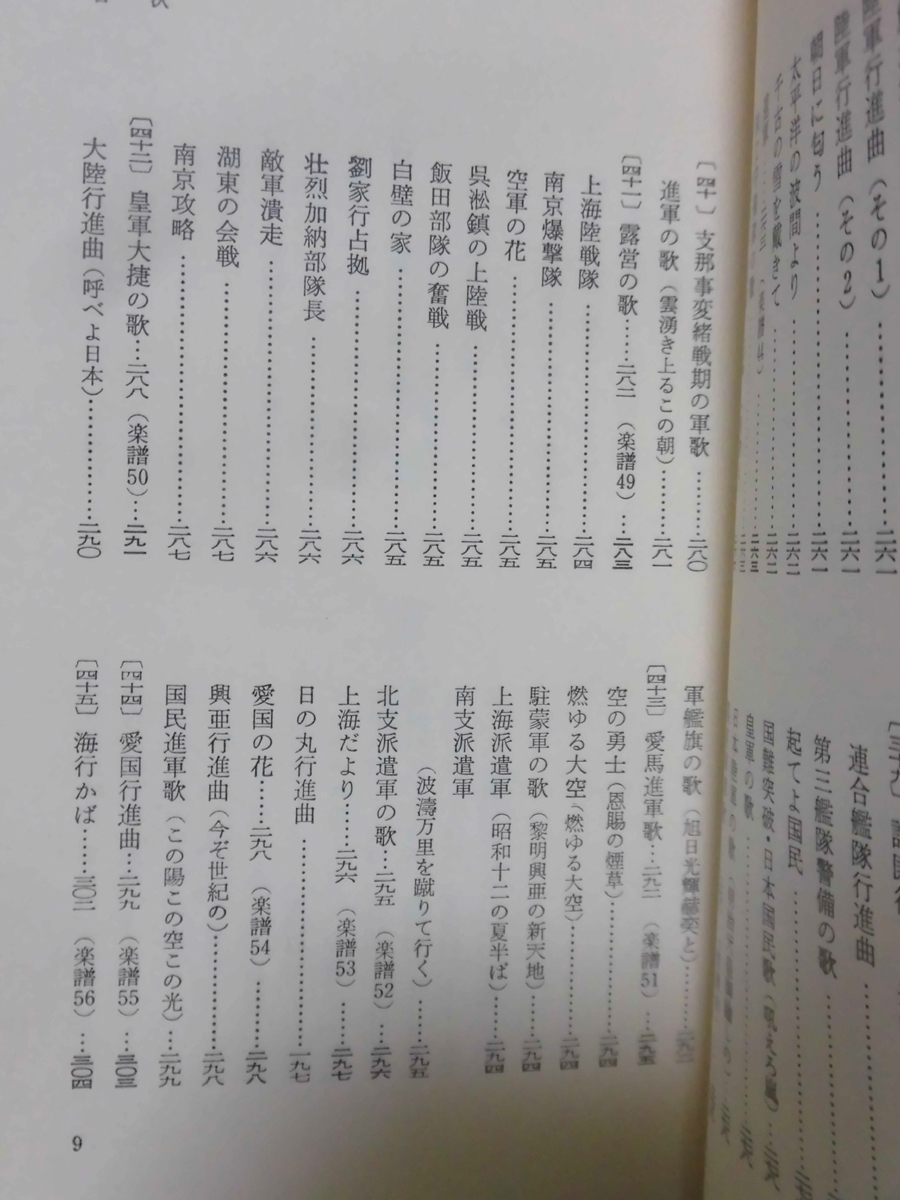 陸軍行進曲（その1）……二六一
陸軍行進曲（その2）……二六一
朝日に匂う……二六一
太平洋の波間より……二六二
千古の雪を戴きて……二六二
連合艦隊行進曲
第三艦隊警備の歌
起てよ国民
国難突破・日本国民歌（吼えろ嵐）
皇軍の歌
〔四十〕支那事変緒戦期の軍歌………二八〇
進軍の歌（雲湧き上るこの朝）………二八一
〔四十一〕露営の歌……二八二（楽譜49）…二八三
上海陸戦隊………二八四
南京爆撃隊………二八五
空軍の花………二八五
呉淞鎮の上陸戦………二八五
飯田部隊の奮戦………二八五
白壁の家………二八五
劉家行占拠………二八六
壮烈加納部隊長………二八六
敵軍潰走………二八六
湖東の会戦………二八七
南京攻略………二八七
〔四十二〕皇軍大捷の歌…二八八（楽譜50）…二九一
大陸行進曲（呼べよ日本）………二九〇
軍艦旗の歌（旭日光輝赫奕と）………
〔四十三〕愛馬進軍歌…二九二（楽譜51）…二九五
空の勇士（恩賜の煙草）………二九四
燃ゆる大空（燃ゆる大空）………二九四
駐蒙軍の歌（黎明興亜の新天地）……二九四
上海派遣軍（昭和十二の夏半ば）……二九四
南支派遣軍
（波濤万里を蹴りて行く）……二九五
北支派遣軍の歌…二九五（楽譜52）…二九六
上海だより……二九六（楽譜53）…二九七
日の丸行進曲………一九七
愛国の花……二九八（楽譜54）………二九八
興亜行進曲（今ぞ世紀の）………二九八
国民進軍歌（この陽この空この光）…二九九
〔四十四〕愛国行進曲…二九九（楽譜55）…三〇三
〔四十五〕海行かば……三〇二（楽譜56）…三〇四
9